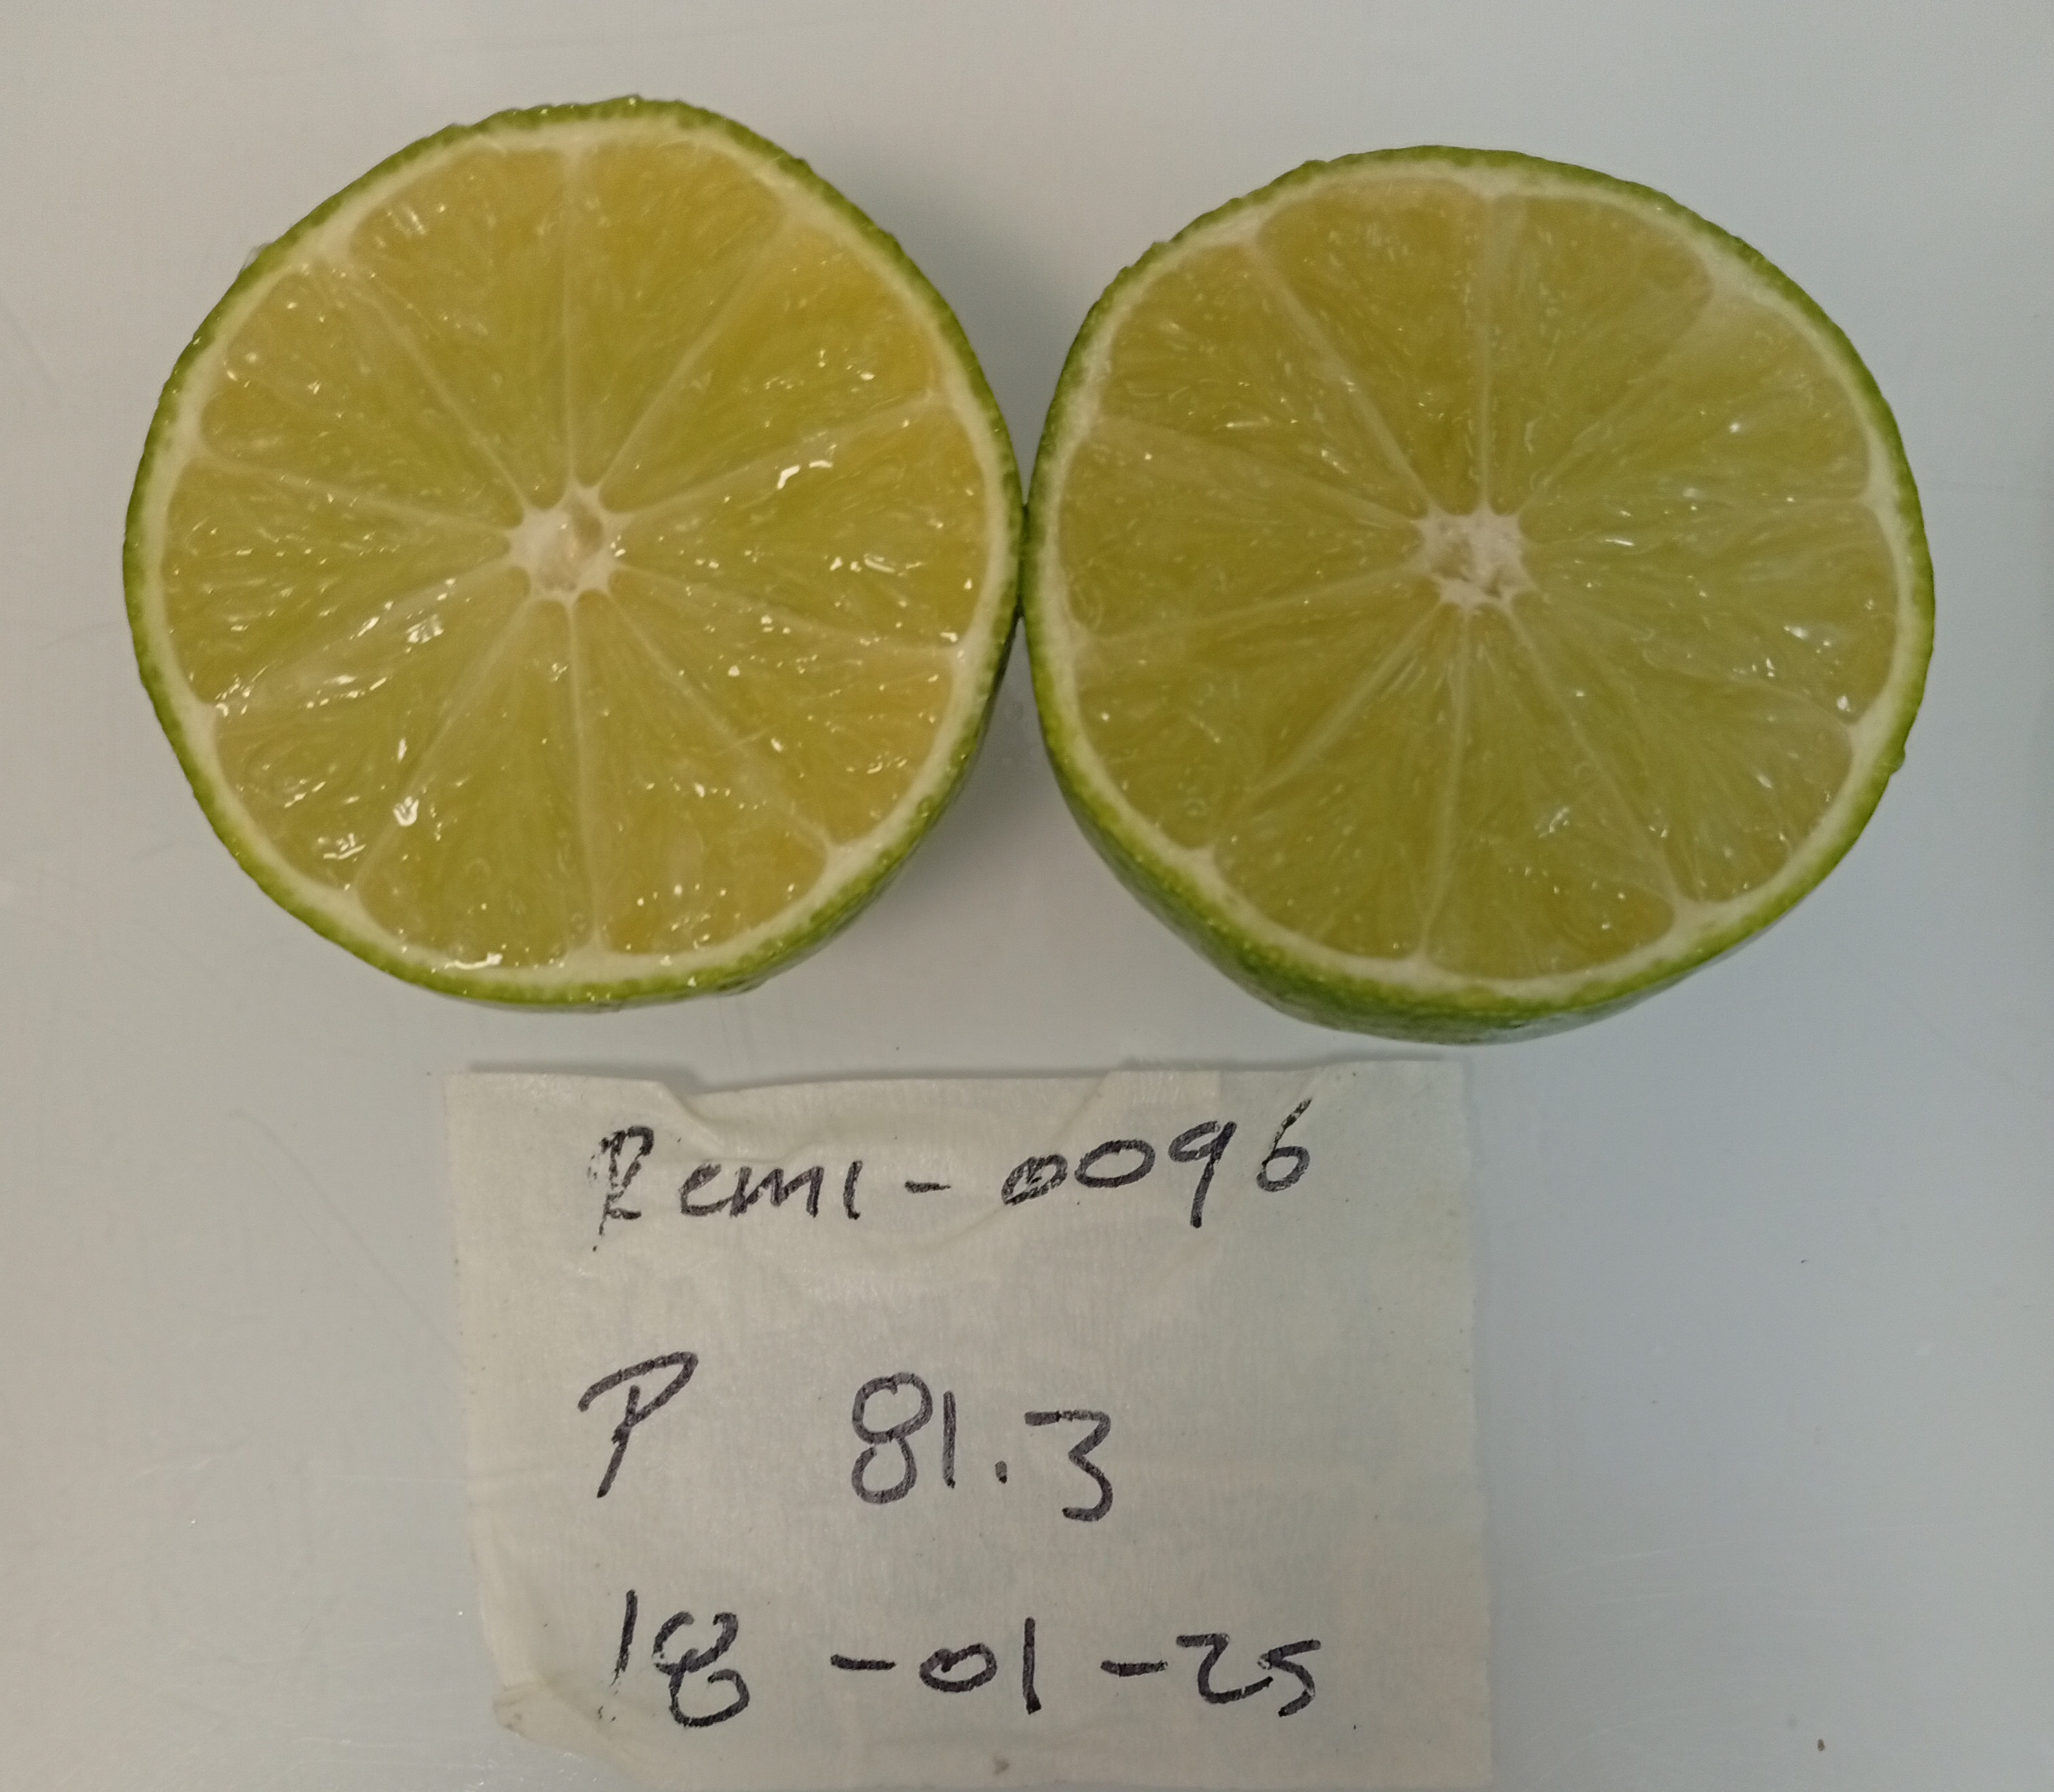 Remi-0096
P 81.3
18-01-25